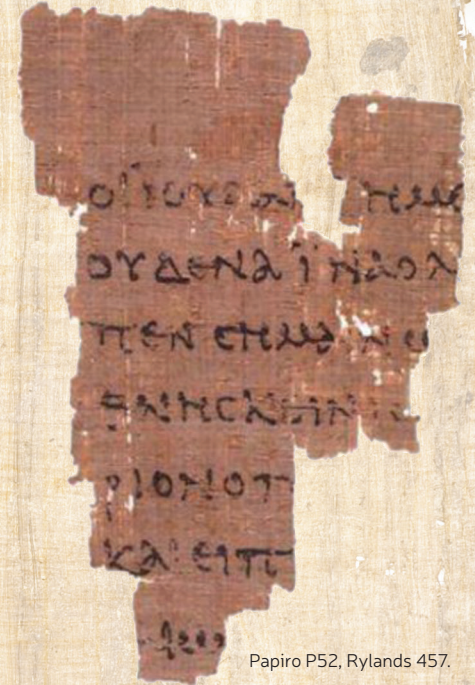 ΟΙ ΙΟΥΔΑΙ ΗΜΕ
ΟΥΔΕΝΑ ΪΝΑ Ο Λ
ΠΕΝ ϹΗΜΑΙΝΩ
ΘΝΗϹΚΕΙΝ
ΡΙΟΝ Ο Π
ΚΑΙ ΕΙΠ
Papiro P52, Rylands 457.